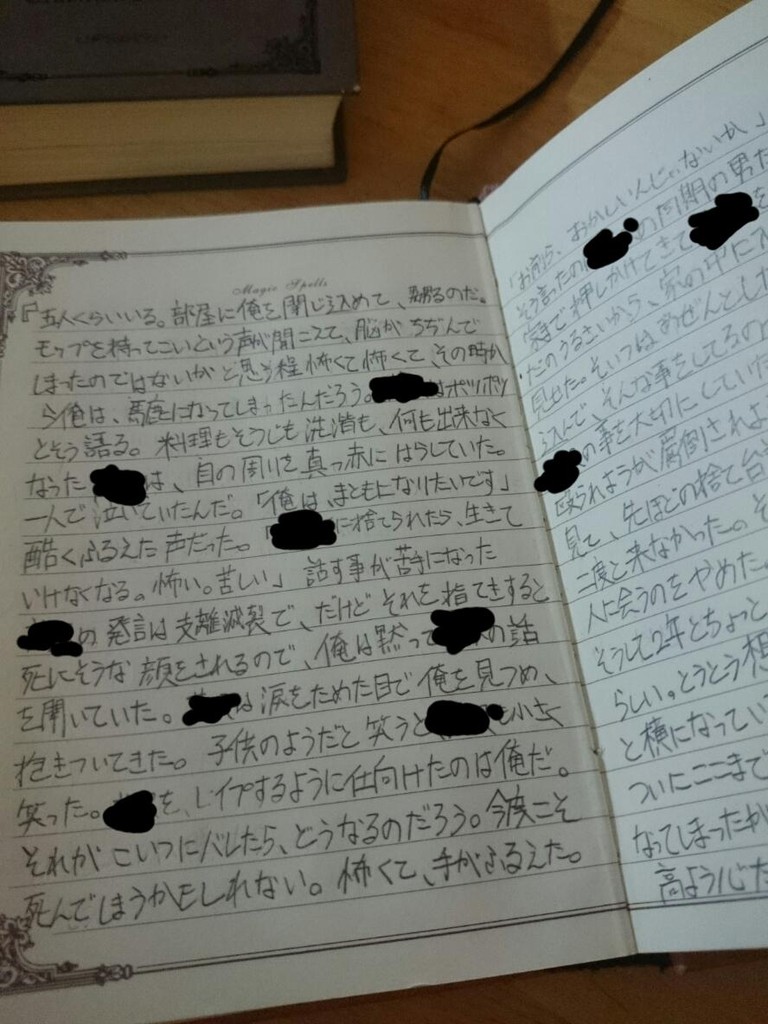 Magic Spells
『五人くらいいる。部屋に俺を閉じ込めて、嬲るのだ。
モップを持ってこいという声が聞こえて、脳がちぢんで
しまったのではないかと思う程怖くて怖くて、その時から
今俺は、馬鹿になってしまったんだろう。 はポツポツ
とそう語る。料理もそうじも洗濯も、何も出来なく
なった は、目の周りを真っ赤にはらしていた。
一人で泣いていたんだ。「俺は、まともになりたいです」
酷くふるえた声だった。「 に捨てられたら、生きて
いけなくなる。怖い。苦しい」話す事が苦手になった
の発言は支離滅裂で、だけどそれを指てきすると
死にそうな顔をされるので、俺は黙って の話
を聞いていた。 は涙をためた目で俺を見つめ、
抱きついてきた。子供のようだと笑うと も小さく
笑った。 を、レイプするように仕向けたのは俺だ。
それがこいつにバレたら、どうなるのだろう。今度こそ
死んでしまうかもしれない。怖くて、手がふるえた。
「お前ら、おかしいんじゃないか」
そう言ったの の同期の男だ
家まで押しかけてきて を
のうるさいから、家の中に入
見せた。そいつはあぜんとした
込んで、そんな事をしてるの
の事を大切にしていた
殴られようが罵倒されよ
見て、先ほどの捨て台
二度と来なかった。そ
人に会うのをやめた。
そうして2年とちょっと
らしい。とうとう想
と横になってい
ついにここまで
なってしまったが
高ようしだ